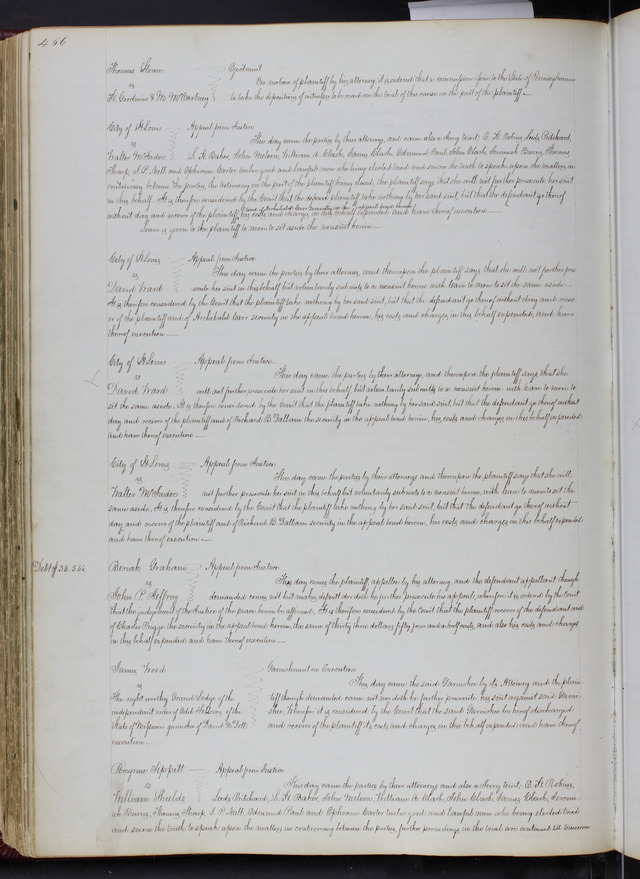 456
Thomas Sloan Ejectment
vs On motion of plaintiff by his attorney, it is ordered that a commission issue to the State of Pennsylvania
H. Goodwin & Wm McCartney to take the deposition of witnesses to be read on the trial of this cause on the part of the plaintiff.
City of St Louis Appeal from Justice
vs This day came the parties by their attorney, and came also a Jury to wit; A. H. Robins, Leeds Pritchard,
Walter McFadoe L. H. Baker, John Meloon, William A. Clark, James Clark, Edmund Paul, John Clark, Jeremiah Burns, Thomas
Tharp, S. P. Still and Ephraim Carter twelve good and lawful men who being elected tried and sworn the truth to speak upon the matters in
controversy between the parties, the testimony on the part of the plaintiff being closed, the plaintiff says that she will not further prosecute her suit
in this behalf. It is therefore considered by the Court that the plaintiff take nothing by her said suit, but that the defendant go thereof
and of Archibald Carr security in the appeal bond herein
without day and recover of the plaintiff his costs and charges in this behalf expended and have thereof execution.
Leave is given to the plaintiff to move to set aside the nonsuit herein
City of St Louis Appeal from Justice
vs This day came the parties by their attorneys, and thereupon the plaintiff says that she will not further prose
David Ward cute her suit in this behalf but voluntarily submits to a nonsuit herein with leave to move to set the same aside
It is therefore considered by the Court that the plaintiff take nothing by her said suit, but that the defendant go thereof without day and recov
er of the plaintiff and of Archibald Carr security in the appeal bond herein, his costs and charges, in this behalf expended, and have
thereof execution.
City of St Louis Appeal from Justice
vs This day came the parties by their attorneys, and thereupon the plaintiff says that she
David Ward will not further prosecute her suit in this behalf but voluntarily submits to a nonsuit herein with leave to move to
set the same aside. It is therefore considered by the Court that the plaintiff take nothing by her said suit, but that the defendant go thereof without
day and recover of the plaintiff and of Richard B. Dallam the security in the appeal bond herein, his costs and charges in this behalf expended
and have thereof execution
City of St Louis Appeal from Justice
vs This day came the parties by their attorneys and thereupon the plaintiff says that she will
Walter McFadoe not further prosecute her suit in this behalf but voluntarily submits to a nonsuit herein, with leave to move to set the
same aside. It is therefore considered by the Court that the plaintiff take nothing by her said suit, but that the defendant go thereof without
day and recover of the plaintiff and of Richard B Dallam security in the appeal bond herein, his costs and charges in this behalf expended
and have thereof execution.
Debt $33.54½ Beriah Graham Appeal from Justice
vs This day comes the plaintiff appellee by his attorney, and the defendant appellant though
John P. Jeffroy demanded comes not but makes default nor doth he further prosecute his appeal, wherefore it is ordered by the Court
that the judgement of the Justice of the peace herein be affirmed. It is therefore considered by the Court that the plaintiff recover of the defendant and
of Charles the security in the appeal bond herein, the sum of thirty three dollars fifty four and a half cents, and also his costs and charges
in this behalf expended and have thereof execution
James Wood Garnishment on Execution
vs This day came the said Garnishee by its Attorney and the plain
The right worthy Grand Lodge of the tiff though demanded came not nor doth he further prosecute his suit against said Garni
independent order of Odd Fellows of the shee. Wherefore it is considered by the Court that the said Garnishee be hereof discharged
State of Missouri garnishee of David W. and recover of the plaintiff its costs and charges in this behalf expended and have thereof
execution
Peregrine Tippett Appeal from Justice
vs This day came the parties by their attorneys and also a Jury to wit; A. H. Robins,
William Shields Leeds Pritchard, L. H. Baker, John Meloon, William A. Clark, John Clark, James Clark, Jeremi
ah Burns, Thomas Tharp, S P Still, Edmund Paul and Ephraim Carter twelve good and lawful men who being elected tried
and sworn the truth to speak upon the matters in controversy between the parties, further proceedings in the trial are continued till tomorrow